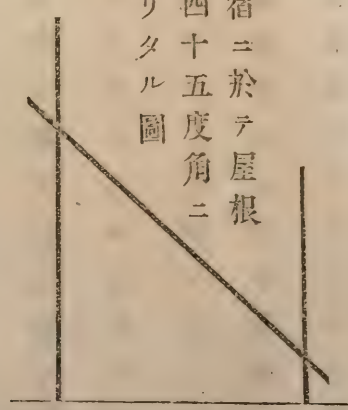 宿ニ於テ屋根
四十五度角ニ
リタル圖